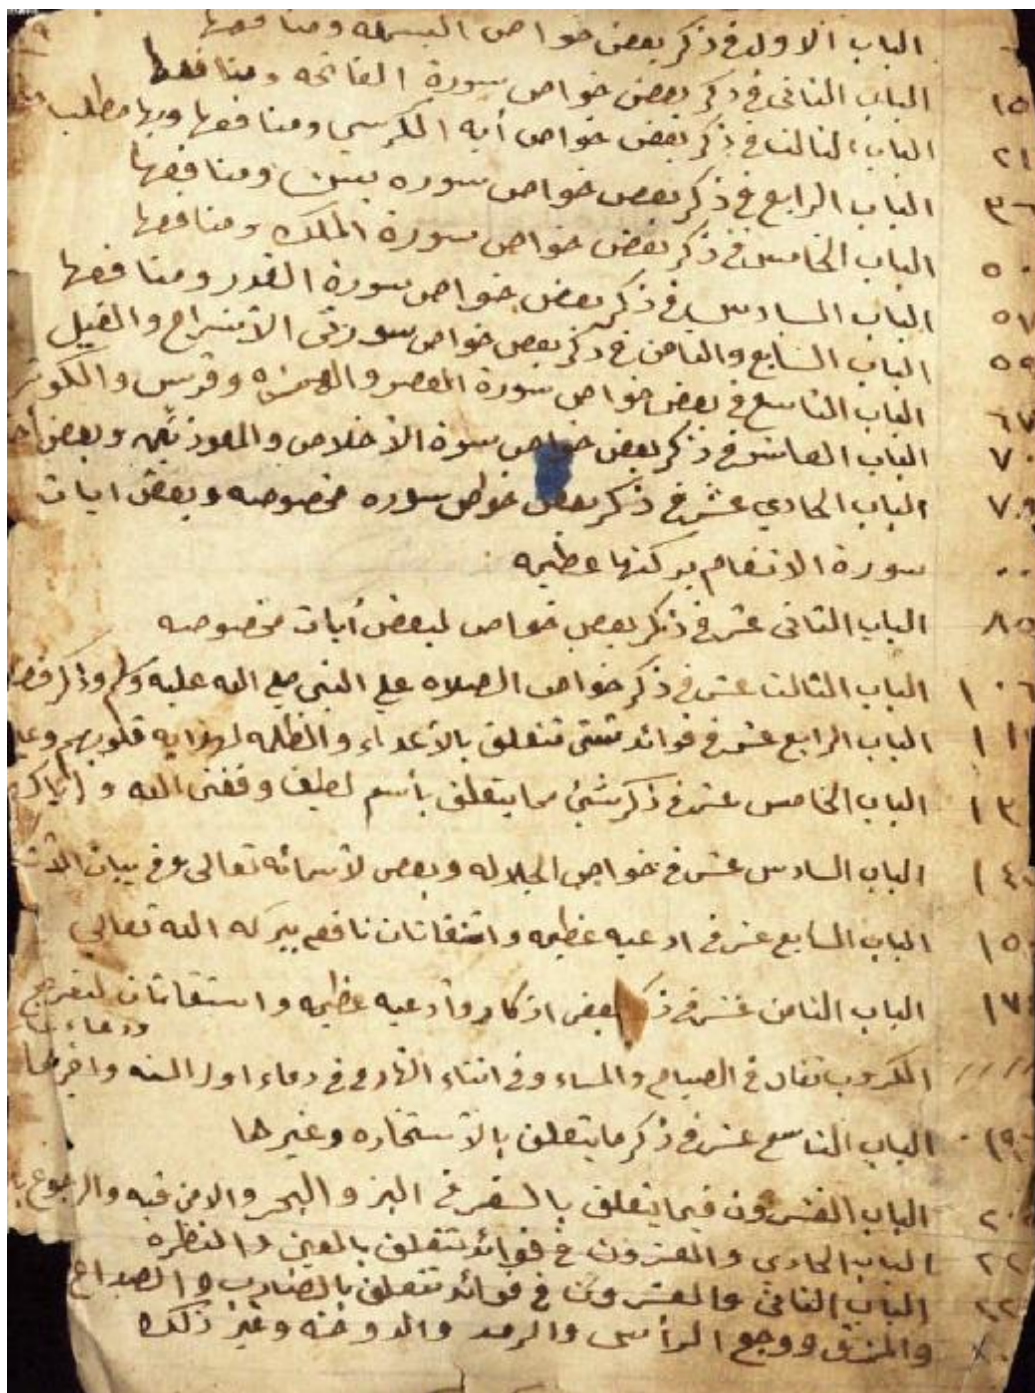 الباب الاول في ذكر بعض خواص البسمله ومنافعها
١٥ الباب الثاني في ذكر بعض خواص سورة الفاتحه ومنافعها
٢١ الباب الثالث في ذكر بعض خواص أية الكرسي ومنافعها وبها مطلب
٣٦ الباب الرابع في ذكر بعض خواص سوره يس ومنافعها
٥٠ الباب الخامس في ذكر بعض خواص سورة الملك ومنافعها
٥٨ الباب السادس في ذكر بعض خواص سورة القدر ومنافعها
٥٩ الباب السابع والثامن في ذكر بعض خواص سورتى الانشراح والفيل
٦٧ الباب التاسع في بعض خواص سورة العصر والهمزه وقريش والكوثر
٧٠ الباب العاشر في ذكر بعض خواص سورة الاخلاص والمعوذتين وبعض
٧٩ الباب الحادي عشر في ذكر بعض خواص سوره مخصوصه وبعض ايات
سورة الانعام بركتها عظيمه
٨٥ الباب الثانى عشر في ذكر بعض خواص لبعض أيات مخصوصه
١٠٦ الباب الثالث عشر في ذكر خواص الصلاه علي النبي صلي الله عليه وسلم وذكر
الباب الرابع عشر في فوائد شتى تتعلق بالأعداء والظلمه لهدايه قلوبهم
الباب الخامس عشر في ذكر شئ مما يتعلق بأسم لطيف وفقنى الله واياك
الباب السادس عشر في خواص الجلاله وبعض لأسمائه تعالى وفي بيان
الباب السابع عشر في ادعيه عظيمه واستغاثات نافعه ببركه الله تعالي
الباب الثامن عشر في ذكر بعض اذكار وأدعيه عظيمه واستغاثات لتفريج
الكروب تقال في الصباح والمساء وفي اثناء النهار وفي دعاء اول السنه واخرها
الباب التاسع عشر في ذكر ما يتعلق بالأستخاره وغيرها
الباب العشرون فيما يتعلق بالسفر في البر والبحر والامن فيه والرجوع
الباب الحادي والعشرون في فوائد تتعلق بالعين والنظره
الباب الثاني والعشرون في فوائد تتعلق بالضارب والصداع
ووجع الرأس والرمد والدوخه وغير ذلك